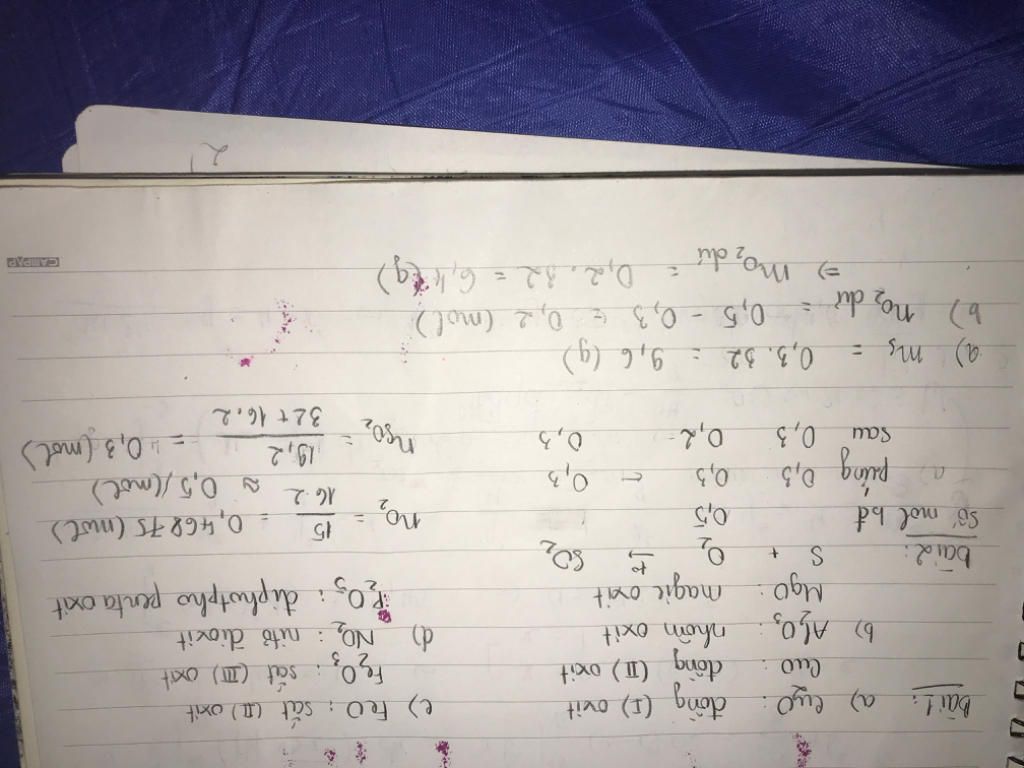 bài 1: a) Cu₂O : đồng (I) oxit c) FeO : sắt (II) oxit
CuO : đồng (II) oxit Fe₂O₃ : sắt (III) oxit
b) Al₂O₃ : nhôm oxit d) NO₂ : nitơ đioxit
MgO : magie oxit P₂O₅ : điphotpho pentaoxit
bài 2: S + O₂ t°→ SO₂
số mol bđ 0,5 nO₂ = 15 / 16.2 = 0,46875 (mol)
a) p/ứng 0,3 0,3 ← 0,3 ≈ 0,5 (mol)
sau 0,3 0,2 0,3 nSO₂ = 19,2 / 32 + 16.2 = 0,3 (mol)
a) mS = 0,3.32 = 9,6 (g)
b) nO₂ dư = 0,5 - 0,3 = 0,2 (mol)
⇒ mO₂ dư = 0,2 . 32 = 6,4 (g)
CAMPAP
2